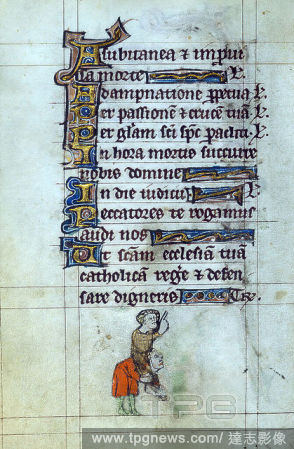 A subitanea & impui
sa morte L.
A dampnatione ppetua L.
Per passionē & crucē tuā. L.
Per glam sci spc paclīti. L.
In hora mortis succurre
nobis domine
In die iudicii L.
Peccatores te rogamus
audi nos
Ut scām ecclesiā tuā
catholicā rege & defen
sare digneris Te.
TPG
www.tpgnews.com / 達志影像